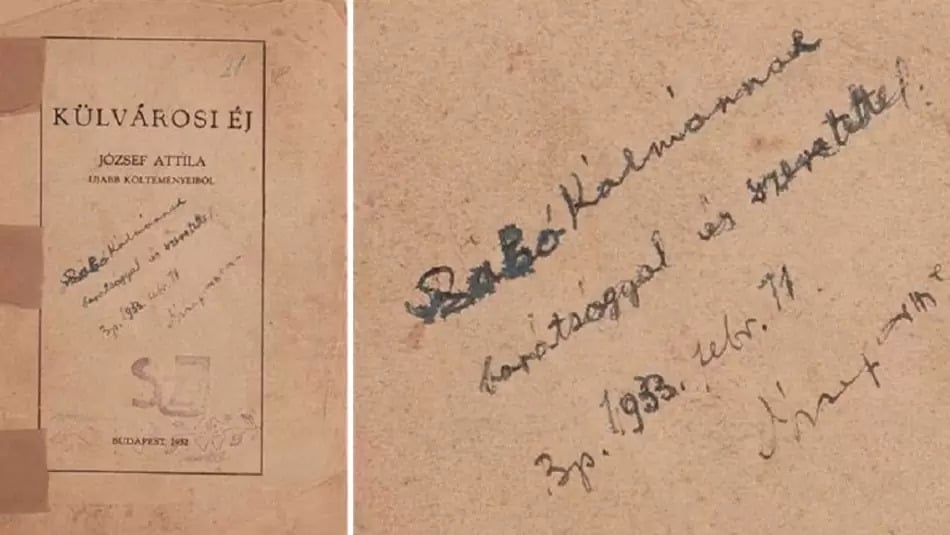 21
KÜLVÁROSI ÉJ
JÓZSEF ATTILA
UJABB KÖLTEMÉNYEIBŐL
Szabó Kálmánnak
barátsággal és szeretettel!
Bp. 1933. febr. 11.
SZ
BUDAPEST, 1932
Szabó Kálmánnak
barátsággal és szeretettel!
Bp. 1933. febr. 11.
József Attila